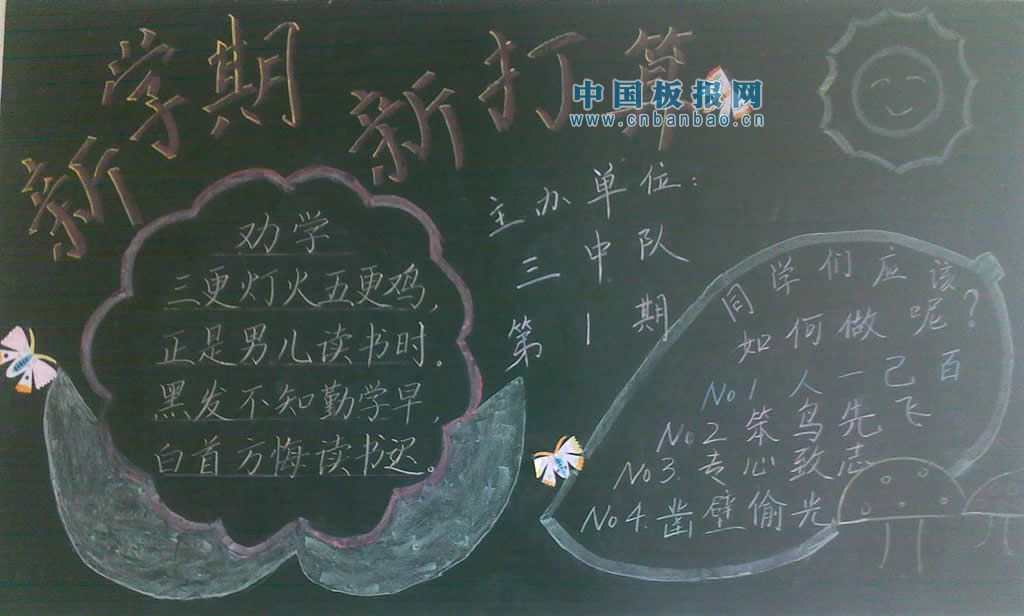 新学期 新打算
中国板报网
www.cnbanbao.cn
劝学
三更灯火五更鸡，
正是男儿读书时。
黑发不知勤学早，
白首方悔读书迟。
主办单位：
三中队
第1期
同学们应该
如何做呢？
No1 人一己百
No2 笨鸟先飞
No3.专心致志
No4.凿壁偷光